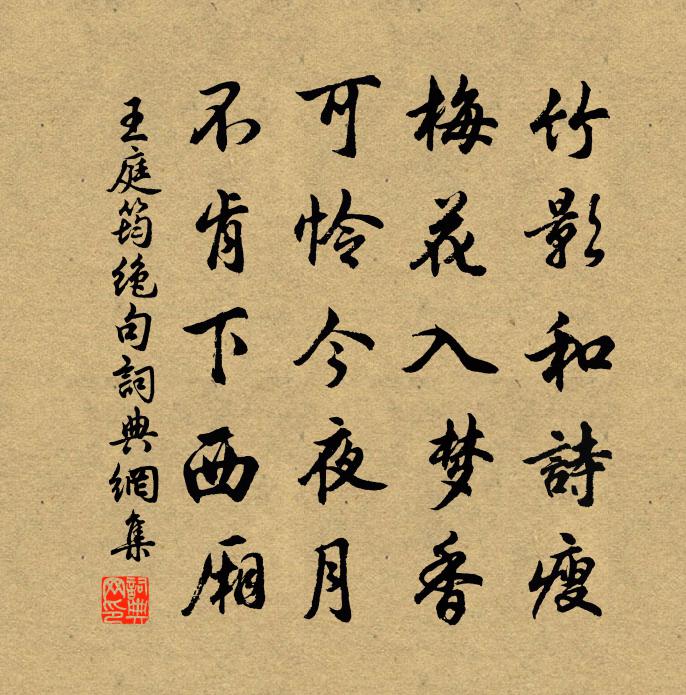 竹影和詩瘦
梅花入梦香
可怜今夜月
不肯下西厢
王庭筠絶句詞典網集
詞典網印